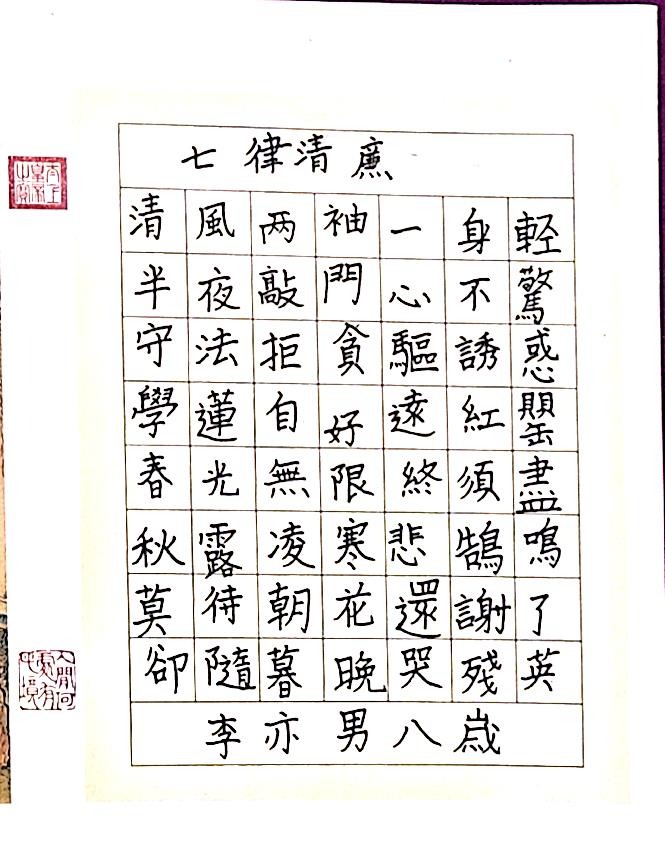 七律清廉
清風両袖一身輕
半夜敲門心不驚
守法拒貪驅誘惑
學蓮自好遠紅罌
春光無限終須盡
秋露凌寒悲鵠鳴
莫待朝花還謝了
卻隨暮晚哭殘英
李亦男八歲